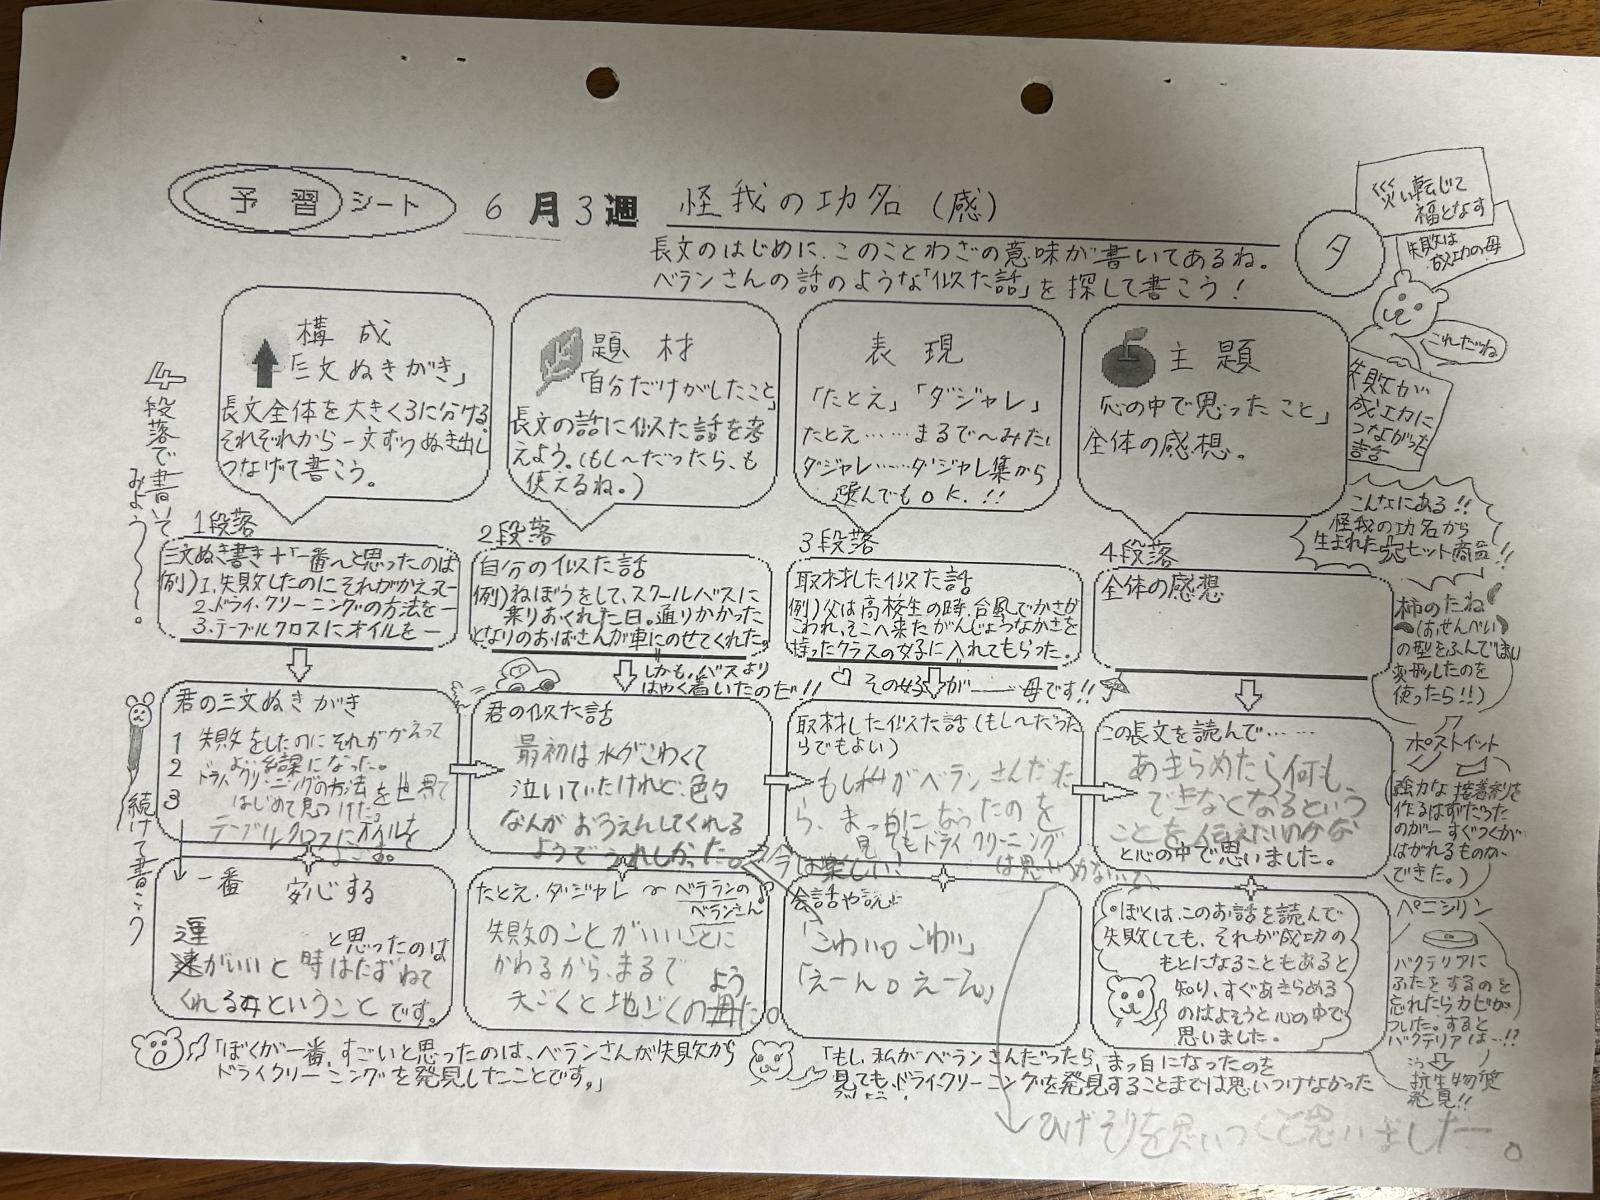 予習シート
6月3週 怪我の功名(感)
長文のはじめに、このことわざの意味が書いてあるね。
ベランさんの話のような「似た話」を探して書こう!
タ
災い転じて
福となす
失敗は
成功の母
これだね
失敗が
成功に
つながった
話
4段落で書いて
みよう〜〜。
構成
「三文ぬきがき」
長文全体を大きく3に分ける。
それぞれから一文ずつぬき出し
つなげて書こう。
題材
「自分だけがしたこと」
長文の話に似た話を考
えよう。(もし〜だったら、も
使えるね。)
表現
「たとえ」「ダジャレ」
たとえ……まるで〜みたい
ダジャレ……ダジャレ集から
選んでもOK.!!
主題
「心の中で思ったこと」
全体の感想。
1段落
三文ぬき書き+「一番〜と思ったのは
例)1.失敗したのにそれがかえって—
2.ドライ・クリーニングの方法を—
3.テーブルクロスにオイルを—
2段落
自分の似た話
例)ねぼうをして、スクールバスに
乗りおくれた日。通りかかった
となりのおばさんが車にのせてくれた。
しかも、バスより
はやく着いたのだ!!
3段落
取材した似た話
例)父は高校生の時、台風でかさが
こわれ、そこへ来たがんじょうなかさを
持ったクラスの女子に入れてもらった。
その女子が——母です!!
4段落
全体の感想
こんなにある!!
怪我の功名から
生まれた大ヒット商品!!
柿のたね
(おせんべい
の型をふんでしまい
変形したのを
使ったら!!)
ポストイット
強力な接着剤を
作るはずだった
のが—すぐつくが
はがれるものが
できた。)
ペニシリン
バクテリアに
ふたをするのを
忘れたらカビが
ついた。すると
バクテリアは…!?
抗生物質
発見!!
続けて書こう
君の三文ぬきがき
1 失敗をしたのにそれがかえって
よい結課になった。
2 ドライクリーニングの方法を世界で
はじめて見つけた。
3 テーブルクロスにオイルを
こぼす。
君の似た話
最初は水がこわくて
泣いていたけれど、色々
な人がおうえんしてくれる
ようでうれしかった。
今は楽しい!
取材した似た話(もし〜だった
らでもよい)
もし私がベランさんだった
ら、まっ白になったのを
見てもドライクリーニング
は思いつめない
この長文を読んで……
あきらめたら何も
できなくなるという
ことを伝えたいのかな
と心の中で思いました。
一番 安心する
運がいいと時はたずねて
と思ったのは
くれる母ということです。
たとえ・ダジャレ〜ベテランの
ベランさん
失敗のことがいいことに
かわるから、まるで
天ごくと地ごくの母だ。
よう
会話や説
「こわい。こわい」
「えーん。えーん」
・ぼくは、このお話を読んで
失敗しても、それが成功の
もとになることもあると
知り、すぐあきらめる
のはよそうと心の中で
思いました。
「ぼくが一番、すごいと思ったのは、ベランさんが失敗から
ドライクリーニングを発見したことです。」
「もし、私がベランさんだったら、まっ白になったのを
見ても、ドライクリーニングを発見することまでは思いつけなかった
ひげそりを思いつくと思いました。